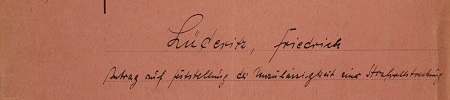 Lüderitz, Friedrich
Antrag auf Feststellung der Unzulässigkeit einer Strafvollstreckung